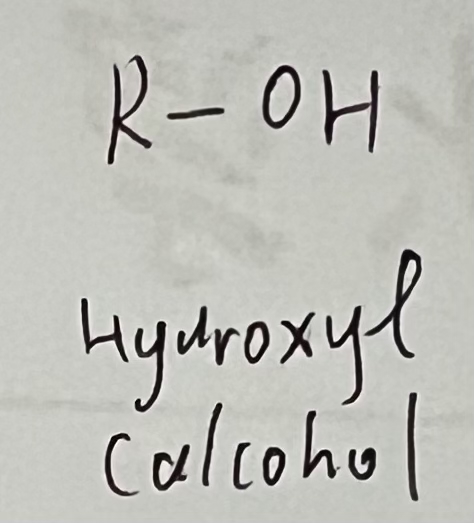 R - OH
Hydroxyl
(alcohol